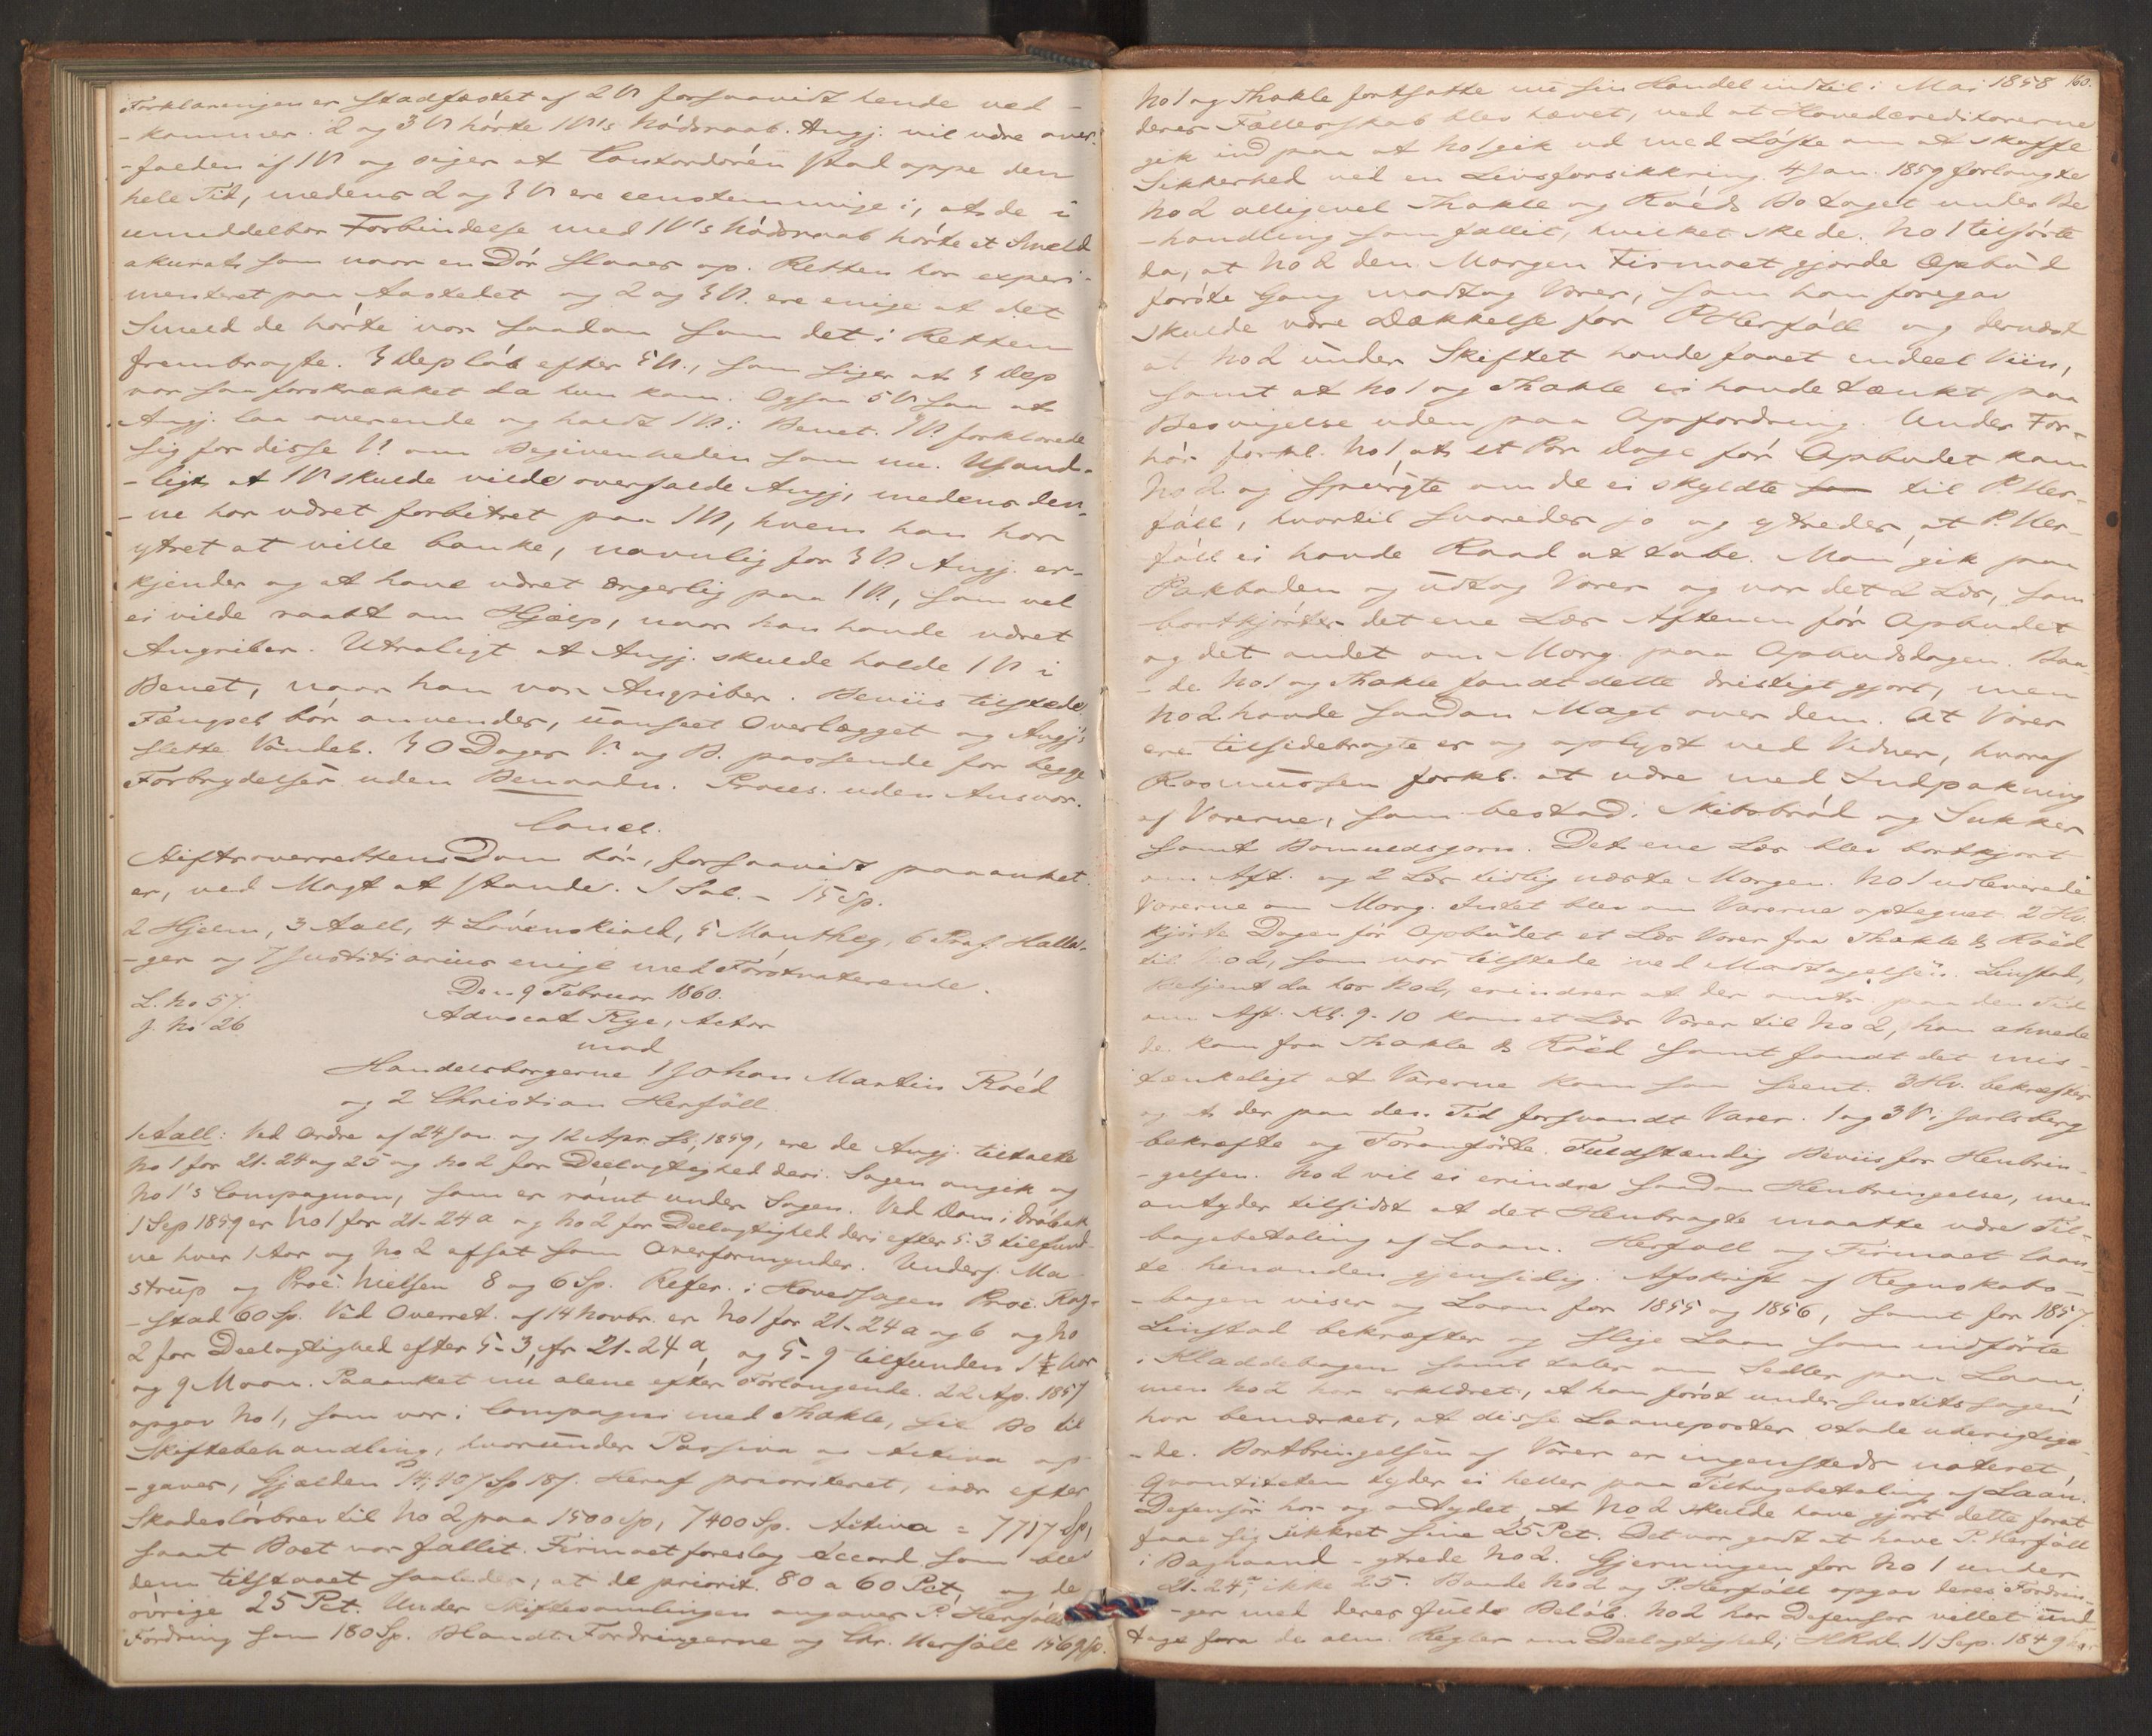 Forklaringen er stadfæstet af 2 V forsaavidt hende ved-
-kommer. 2 og 3 V hørte 1 V's Nødsraab. Angj. vil være over-
-falden af 1 V og siger at Contordøren stod oppe den
hele Tid, medens 2 og 3 V ere eenstemmige i, at de i
umiddelbar Forbindelse med 1 V's Nødsraab hørte et Smeld
akurat som naar en Dør slaaes op. Retten har experi-
menteret paa Aastedet og 2 og 3 V. ere enige at det
Smeld de hørte var saadan som det i Retten
frembragte. 3 Dep løb efter 5 V., som siger at 3 Dep
var saa forskrækket da hun kom. Ogsaa 5 V saa at
Angj. laa overende og holdt 1 V. i Benet. 1 V. forklarede
sig for disse V. om Begivenheden som nu. Usand-
-ligt at 1 V skulde vilde overfalde Angj, medens den-
-ne har været forbitret paa 1 V, hvem han har
ytret at ville banke, navnlig for 3 V. Angj. er-
kjender og at have været ærgerlig paa 1 V., som vel
ei vilde raabt om Hjælp, naar han havde været
Angriber. Utroligt at Angj. skulde holde 1 V i
Benet, naar han var Angriber. Beviis tilstede.
Fængsel bør anvendes, uanseet Overlægget og Angj's
slette Vandel. 30 Dages V. og B. passende for begge
Forbrydelser uden Benaadn. Proces. uden Ansvar.
Concl.
Stiftsoverrettens Dom bør, forsaavidt paaanket
er, ved Magt at stande. I Sal. - 15 Sp.
2 Hjelm, 3 Aall, 4 Løvenskiold, 5 Manthey, 6 Prof. Halla-
-ger og 7 Justitiarius enige med Førstvoterende.
Den 9 Februar 1860.
L. No 57.
J. No 26
Advocat Rye, Actor
mod
Handelsborgerne 1 Johan Martin Roéd
og 2 Christian Herføll.
1 Aall: Ved Ordre af 24 Jan. og 12 Apr. 1859, ere de Angj. tiltalte
No 1 for 21-24 og 25 og No 2 for Deelagtighed deri. Sagen angik og
No 1's Compagnon, som er rømt under Sagen. Ved Dom i Drøbak
1 Sep 1859 er No 1 for 21-24 a og No 2 for Deelagtighed deri efter 5-3 tilfund-
ne hver 1 Aar og No 2 afsat som Overformynder. Undersj. Ma-
strup og Proc. Nielsen 8 og 6 Sp. Refer. i Hovedsagen Proc. 
-stad 60 Sp. Ved Overret. af 14 Novbr. er No 1 for 21-24 a og b og No
2 for Deelagtighed efter 5-3, fr 21-24 a, og 5-9 tilfunden 1½ Aar
og 9 Maan. Paaanket nu alene efter Forlangende. 22 Ap. 1857
opgav No 1, som var i Compagni med Thakle, sit Bo til
Skiftebehandling, hvorunder Passiva og Activa op-
-gaves, Gjælden 14,137 Sp 187. Heraf prioriteret, især efter
Skadesløsbrev til No 2 paa 1500 Sp, 7400 Sp. Activa = 7717 Sp,
saaat Boet var fallit. Firmaet foreslog Accord, som blev
dem tilstaaet saaledes, at de priorit. 80 a 60 Pct. og de
øvrige 25 Pct. Under Skiftesamlingen angaves P. Herfølls
Fordring som 180 Sp. Blandt Fordringerne og Chr. Herføll 1569 Sp.
160.
No 1 og Thakle fortsatte nu sin Handel indtil i Mai 1858
deres Fællesskab blev hævet, ved at Hovedcreditorerne
gik ind paa at No 1 gik ud med Løfte om at skaffe
Sikkerhed ved en Livsforsikkring. 4 Jan. 1859 forlangte
No 2 alligevel Thakle og Roéds Bo taget under Be-
-handling som fallit, hvilket skede. No 1 tilførte
da, at No 2 den Morgen Firmaet gjorde Opbud
første Gang modtog Varer, som han foregav
skulde være Dækkelse for P. Herføll og dernæst
at No 2 under Skiftet havde faaet endeel Viin,
samt at No 1 og Thakle ei havde tænkt paa
Besvigelse uden paa Opfordring. Under For-
hør forkl. No 1, at et Par Dage før Opbudet kom
No 2 og spurgte om de ei skyldte til P. Her-
føll, hvortil svaredes jo og ytredes, at P. Her-
føll ei havde Raad at tabe. Man gik paa
Pakboden og udtog Varer og var det 2 Læs, som
bortkjørtes det ene Læs Aftenen før Opbudet
og det andet om Morg. paa Opbudsdagen. Baa-
-de No 1 og Thakle fandt dette dristigt gjort, men
No 2 havde saadan Magt over dem. At Varer
ere tilsidebragte er og oplyst ved Vidner, hvoraf
Rasmussen forkl. at være med Indpakning
af Varerne, som bestod i Skibsbrød og Sukker
samt Bomuldsgarn. Det ene Læs blev bortkjørt
om Aft. og 2 Læs tidlig næste Morgen. No 1 udleverede
Varerne om Morg. Intet blev om Varerne optegnet. 2 Hv.
kjørte Dagen før Opbudet et Læs Varer fra Thakle & Roéd
til No 2, som var tilstede ved Modtagelsen. Linstad,
Betjent da hos No 2, erindrer at der omtr. paa den Tid
om Aft. Kl. 9-10 kom et Læs Varer til No 2, han ahnede
de kom fra Thakle & Roéd samt fandt det mis-
tænkeligt at Varerne kom saa seent. 3 Hv. bekræfter
og at der paa den Tid forsvandt Varer. 1 og 3 V. Jarlsberg
bekræfte og Foranførte. Fuldstændig Beviis for Henbrin-
-gelsen. No 2 vil ei erindre saadan Henbringelse, men
antyder tilsidst at det Henbragte maatte være Til-
bagebetaling af Laan. Herføll og Firmaet laan-
te hinanden gjensidig. Afskrift af Regnskabs-
-bogen viser og Laan for 1855 og 1856, samt for 1857.
Linstad bekræfter og slige Laan som indførte
i Kladdebogen samt taler om Sedler paa Laan,
men No 2 har erklæret, at han først under Justitssagen
har bemærket, at disse Laaneposter stode uberigtige-
-de. Bortbringelsen af Varer er ingensteds noteret,
Qvantiteten tyder ei heller paa Tilbagebetaling af Laan.
Defensor har og antydet, at No 2 skulde have gjort dette forat
faae sig sikkret sine 25 Pct. Det var godt at have P. Herføll
i Baghaand - ytrede No 2. Gjerningen for No 1 under
21-24 a, ikke 25. Baade No 2 og P. Herføll opgav deres Fordrin-
-ger med deres fulde Beløb. No 2 har Defensor villet und-
tage fra de alm. Regler om Deelagtighed, HRd. 11 Sep. 1849 har